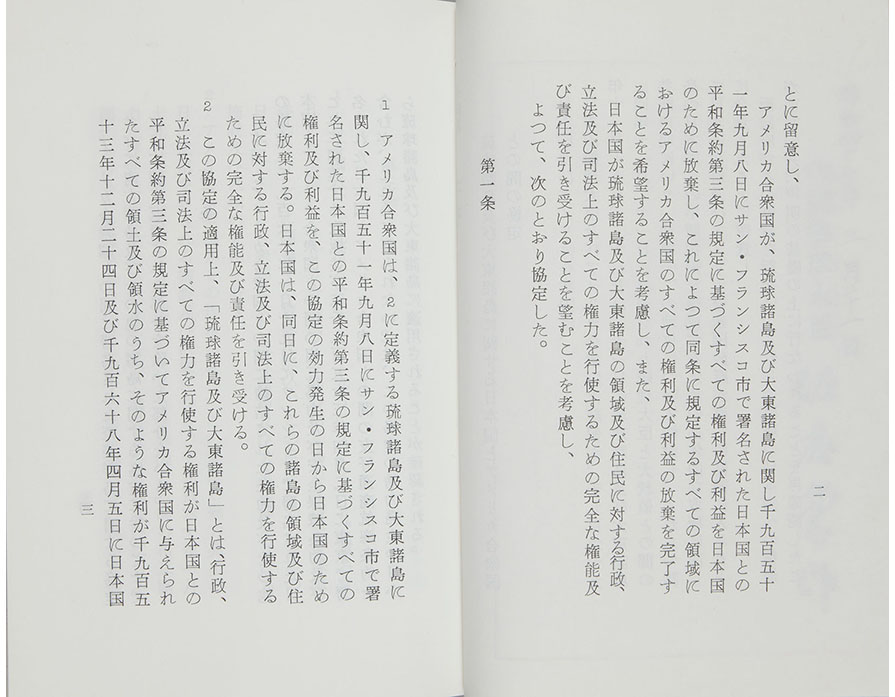 とに留意し、
アメリカ合衆国が、琉球諸島及び大東諸島に関し千九百五十
一年九月八日にサン・フランシスコ市で署名された日本国との
平和条約第三条の規定に基づくすべての権利及び利益を日本国
のために放棄し、これによつて同条に規定するすべての領域に
おけるアメリカ合衆国のすべての権利及び利益の放棄を完了す
ることを希望することを考慮し、また、
日本国が琉球諸島及び大東諸島の領域及び住民に対する行政、
立法及び司法上のすべての権力を行使するための完全な権能及
び責任を引き受けることを望むことを考慮し、
よつて、次のとおり協定した。
第一条
二
1 アメリカ合衆国は、2に定義する琉球諸島及び大東諸島に
関し、千九百五十一年九月八日にサン・フランシスコ市で署
名された日本国との平和条約第三条の規定に基づくすべての
権利及び利益を、この協定の効力発生の日から日本国のため
に放棄する。日本国は、同日に、これらの諸島の領域及び住
民に対する行政、立法及び司法上のすべての権力を行使する
ための完全な権能及び責任を引き受ける。
2 この協定の適用上、「琉球諸島及び大東諸島」とは、行政、
立法及び司法上のすべての権力を行使する権利が日本国との
平和条約第三条の規定に基づいてアメリカ合衆国に与えられ
たすべての領土及び領水のうち、そのような権利が千九百五
十三年十二月二十四日及び千九百六十八年四月五日に日本国
三